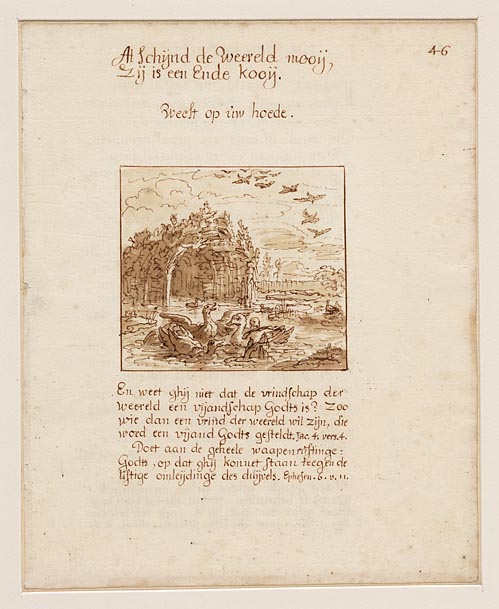 Al Schijnd de Weereld mooij,
46
Zij is een Ende kooij.
Weest op uw hoede.
En weet ghij niet dat de vrindschap der
weereld een vijandschap Godts is? Zoo
wie dan een vrind der weereld wil zijn, die
word een vijand Godts gesteldt. Jac. 4. vers. 4.
Doet aan de geheele waapenrustinge
Godts, op dat ghij konnet staan teegen de
listige omleijdinge des duijvels. Ephesen. 6. v. 11.